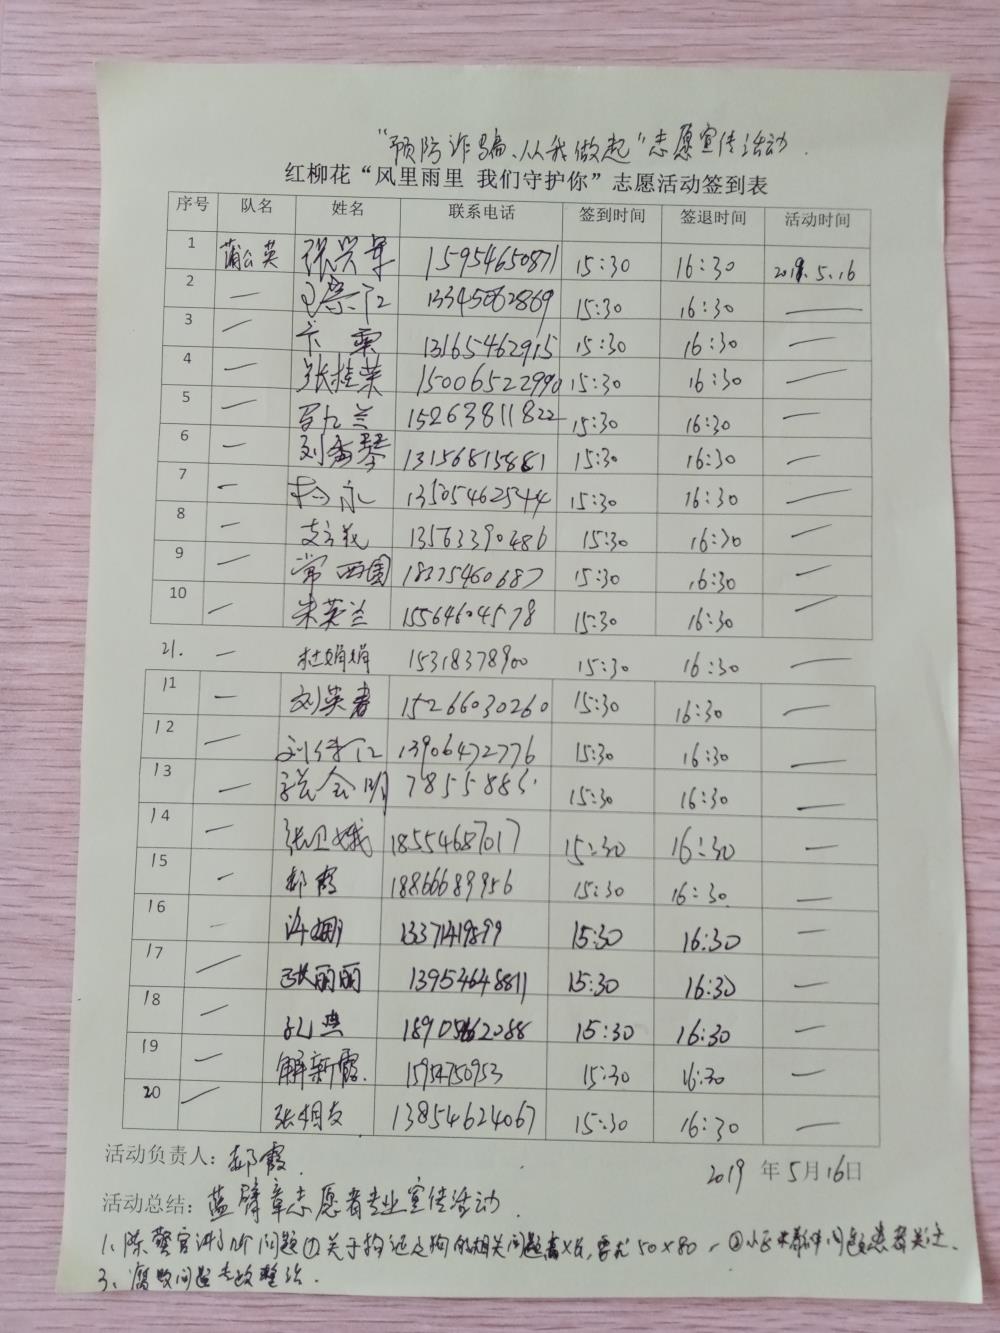 “预防诈骗、从我做起”志愿宣传活动.
红柳花“风里雨里 我们守护你”志愿活动签到表
序号 队名 姓名 联系电话 签到时间 签退时间 活动时间
1 蒲公英 张兴军 15954650871 15:30 16:30 2019.5.16
2 — 13345062869 15:30 16:30 —
3 — 卞雲 13165462915 15:30 16:30 —
4 — 张桂荣 15006522990 15:30 16:30 —
5 — 罗九兰 15263811822 15:30 16:30 —
6 — 刘香琴 13156815881 15:30 16:30 —
7 — 杨永 13505462544 15:30 16:30 —
8 — 13563390486 15:30 16:30 —
9 — 常西国 18375460687 15:30 16:30 —
10 — 朱英兰 15564604578 15:30 16:30 —
21. — 杜娟娟 15318378900 15:30 16:30 —
11 — 刘英春 15266030260 15:30 16:30 —
12 — 13906472776 15:30 16:30 —
13 — 张会明 7855886 15:30 16:30 —
14 — 张卫娥 18554687017 15:30 16:30 —
15 — 郝霞 18866689956 15:30 16:30 —
16 — 许娜 13371419899 15:30 16:30 —
17 — 张丽丽 13954648811 15:30 16:30 —
18 — 孔燕 18905462088 15:30 16:30 —
19 — 解新霞. 15954750953 15:30 16:30 —
20 — 张相友 13854624067 15:30 16:30 —
活动负责人: 郝霞.
2019 年 5 月 16 日
活动总结: 蓝臂章志愿者专业宣传活动.
1、陈警官讲了几个问题①关于狗证及狗的相关问题 50×80, ②小区 问题 关注.
3、腐败问题